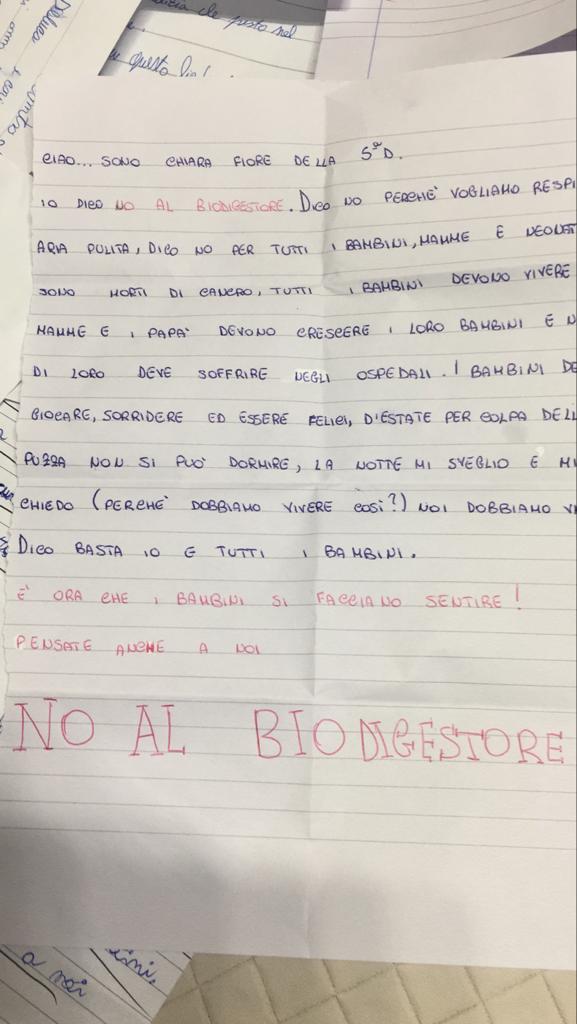 questo
CIAO... SONO CHIARA FIORE DELLA 5ªD.
IO DICO NO AL BIODIGESTORE. DICO NO PERCHÈ VOGLIAMO RESPI
ARIA PULITA, DICO NO PER TUTTI I BAMBINI, MAMME E NEONAT
SONO MORTI DI CANCRO, TUTTI I BAMBINI DEVONO VIVERE
MAMME E I PAPA' DEVONO CRESCERE I LORO BAMBINI E N
DI LORO DEVE SOFFRIRE NEGLI OSPEDALI. I BAMBINI DE
GIOCARE, SORRIDERE ED ESSERE FELICI, D'ESTATE PER COLPA DELL
PUZZA NON SI PUÒ DORMIRE, LA NOTTE MI SVEGLIO E MI
CHIEDO (PERCHE' DOBBIAMO VIVERE COSÌ?) NOI DOBBIAMO VI
DICO BASTA IO E TUTTI I BAMBINI.
È ORA CHE I BAMBINI SI FACCIANO SENTIRE!
PENSATE ANCHE A NOI
NO AL BIODIGESTORE
a noi